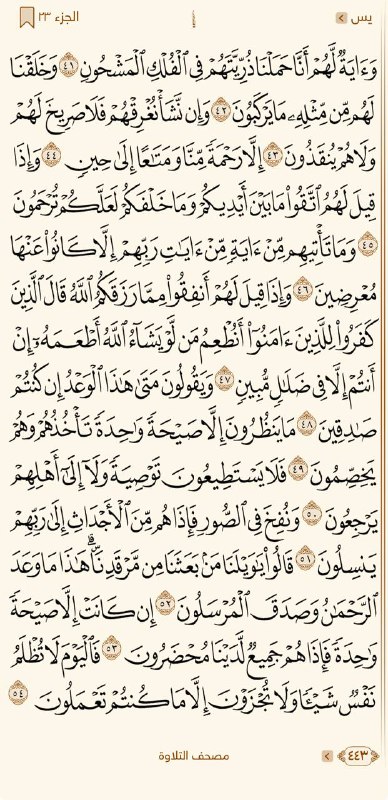 يس
الجزء ٢٣
وَءَايَةٌ لَّهُمْ أَنَّا حَمَلْنَا ذُرِّيَّتَهُمْ فِي الْفُلْكِ الْمَشْحُونِ ٤١ وَخَلَقْنَا
لَهُم مِّن مِّثْلِهِۦ مَا يَرْكَبُونَ ٤٢ وَإِن نَّشَأْ نُغْرِقْهُمْ فَلَا صَرِيخَ لَهُمْ
وَلَا هُمْ يُنقَذُونَ ٤٣ إِلَّا رَحْمَةً مِّنَّا وَمَتَٰعًا إِلَىٰ حِينٍ ٤٤ وَإِذَا
قِيلَ لَهُمُ اتَّقُوا۟ مَا بَيْنَ أَيْدِيكُمْ وَمَا خَلْفَكُمْ لَعَلَّكُمْ تُرْحَمُونَ
٤٥ وَمَا تَأْتِيهِم مِّنْ ءَايَةٍ مِّنْ ءَايَٰتِ رَبِّهِمْ إِلَّا كَانُوا۟ عَنْهَا
مُعْرِضِينَ ٤٦ وَإِذَا قِيلَ لَهُمْ أَنفِقُوا۟ مِمَّا رَزَقَكُمُ اللَّهُ قَالَ الَّذِينَ
كَفَرُوا۟ لِلَّذِينَ ءَامَنُوٓا۟ أَنُطْعِمُ مَن لَّوْ يَشَآءُ اللَّهُ أَطْعَمَهُۥٓ إِنْ
أَنتُمْ إِلَّا فِي ضَلَٰلٍ مُّبِينٍ ٤٧ وَيَقُولُونَ مَتَىٰ هَٰذَا الْوَعْدُ إِن كُنتُمْ
صَٰدِقِينَ ٤٨ مَا يَنظُرُونَ إِلَّا صَيْحَةً وَٰحِدَةً تَأْخُذُهُمْ وَهُمْ
يَخِصِّمُونَ ٤٩ فَلَا يَسْتَطِيعُونَ تَوْصِيَةً وَلَآ إِلَىٰٓ أَهْلِهِمْ
يَرْجِعُونَ ٥٠ وَنُفِخَ فِي الصُّورِ فَإِذَا هُم مِّنَ الْأَجْدَاثِ إِلَىٰ رَبِّهِمْ
يَنسِلُونَ ٥١ قَالُوا۟ يَٰوَيْلَنَا مَنۢ بَعَثَنَا مِن مَّرْقَدِنَاۜ ۗ هَٰذَا مَا وَعَدَ
الرَّحْمَٰنُ وَصَدَقَ الْمُرْسَلُونَ ٥٢ إِن كَانَتْ إِلَّا صَيْحَةً
وَٰحِدَةً فَإِذَا هُمْ جَمِيعٌ لَّدَيْنَا مُحْضَرُونَ ٥٣ فَالْيَوْمَ لَا تُظْلَمُ
نَفْسٌ شَيْـًٔا وَلَا تُجْزَوْنَ إِلَّا مَا كُنتُمْ تَعْمَلُونَ ٥٤
٤٤٣
مصحف التلاوة